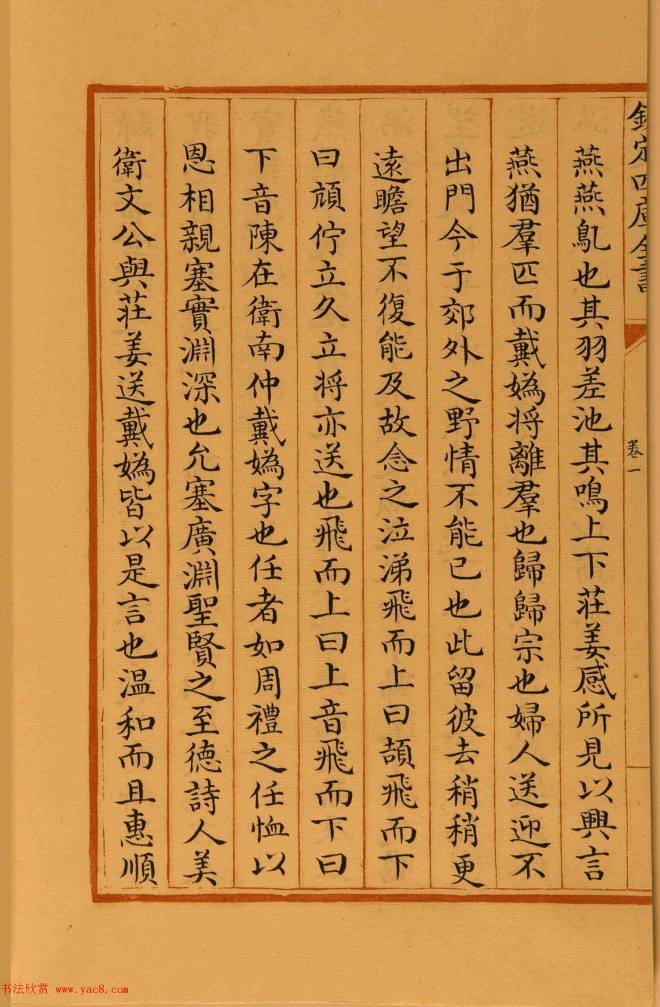 欽定四庫全書
卷一
燕燕鳦也其羽差池其鳴上下莊姜感所見以興言
燕猶羣匹而戴媯将離羣也歸歸宗也婦人送迎不
出門今于郊外之野情不能已也此留彼去稍稍更
遠瞻望不復能及故念之泣涕飛而上曰頡飛而下
曰頏佇立久立将亦送也飛而上曰上音飛而下曰
下音陳在衛南仲戴媯字也任者如周禮之任恤以
恩相親塞實淵深也允塞廣淵聖賢之至德詩人美
衛文公與莊姜送戴媯皆以是言也温和而且惠順
书法欣赏 www.yac8.com